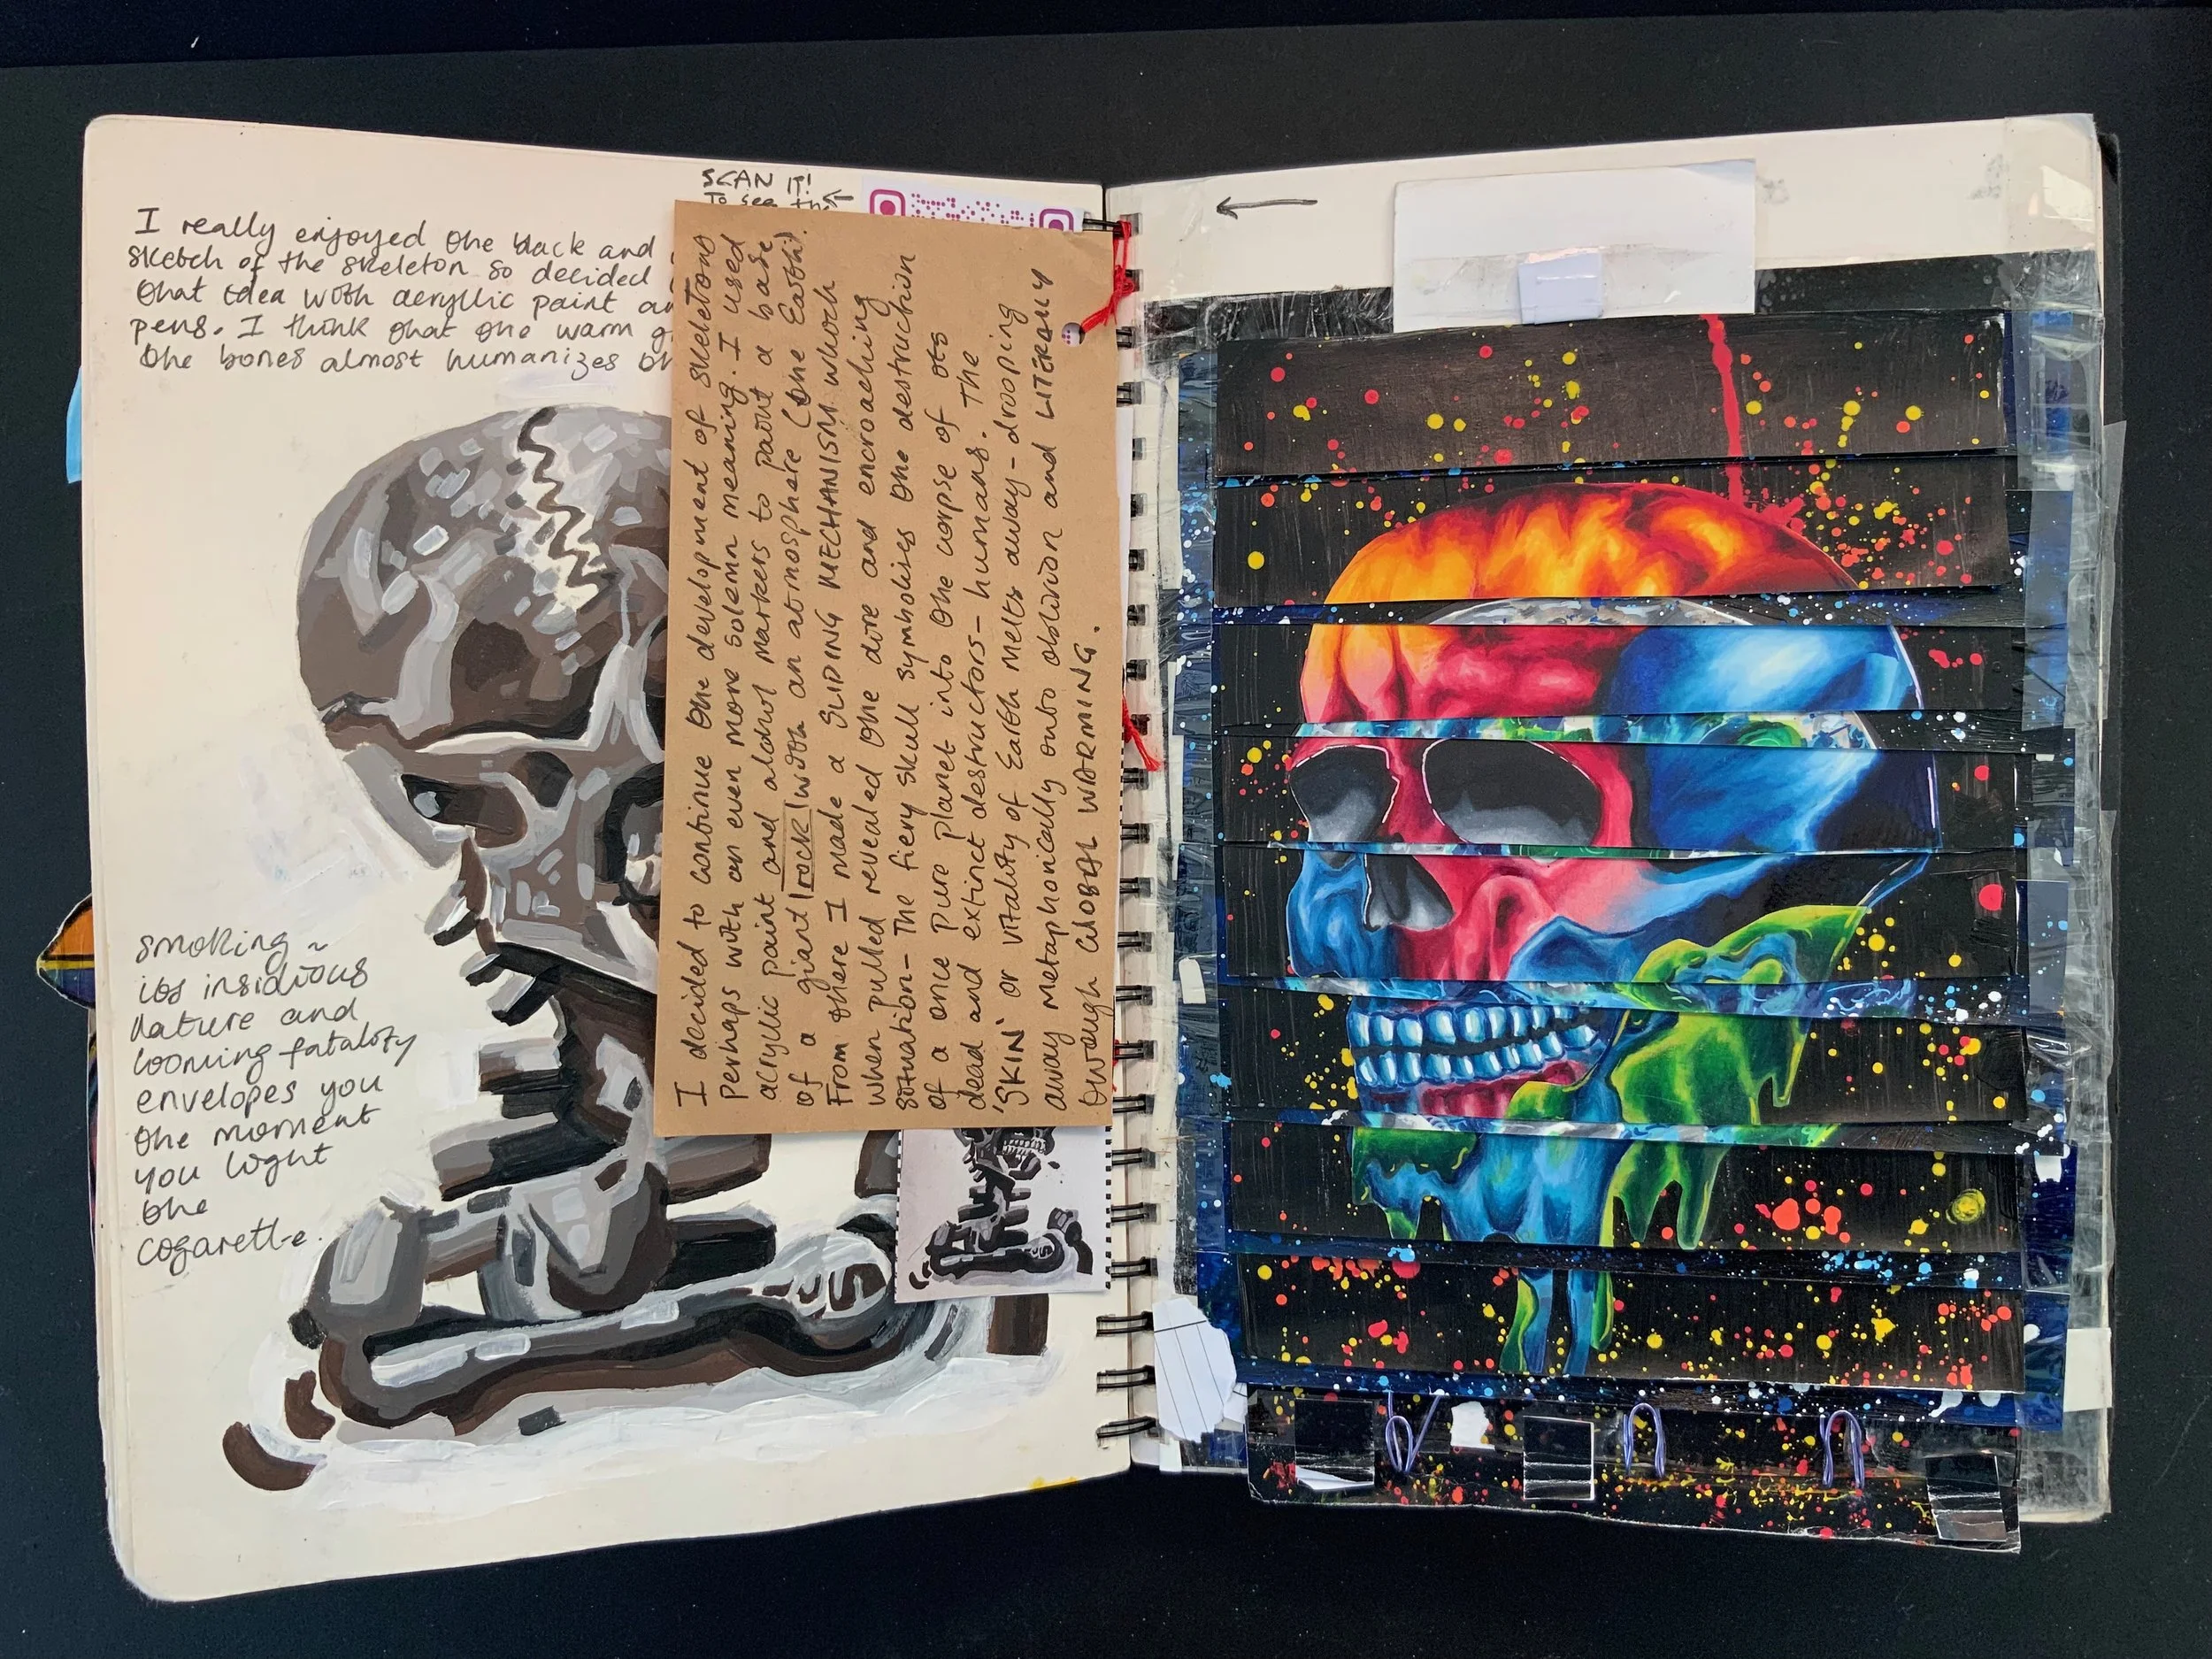 I really enjoyed the black and
sketch of the skeleton so decided
that idea with acryllic paint an
pens. I think that the warm g
the bones almost humanizes th
SCAN IT!
To see the
smoking ~
its insidious
nature and
looming fatality
envelopes you
the moment
you light
the
cogarette.
I decided to continue the development of skeletons
perhaps with an even more solemn meaning. I used
acryllic paint and alchol markers to paint a base
of a giant rock with an atmosphere (the Earth).
From there I made a SLIDING MECHANISM which
when pulled revealed the dire and encroaching
situation- The fiery skull symbolises the destruction
of a once pure planet into the corpse of its
dead and extinct destructors- humans. The
'SKIN' or vitality of Earth melts away- dropping
away metaphorically into oblivion and LITERALLY
through GLOBAL WARMING.